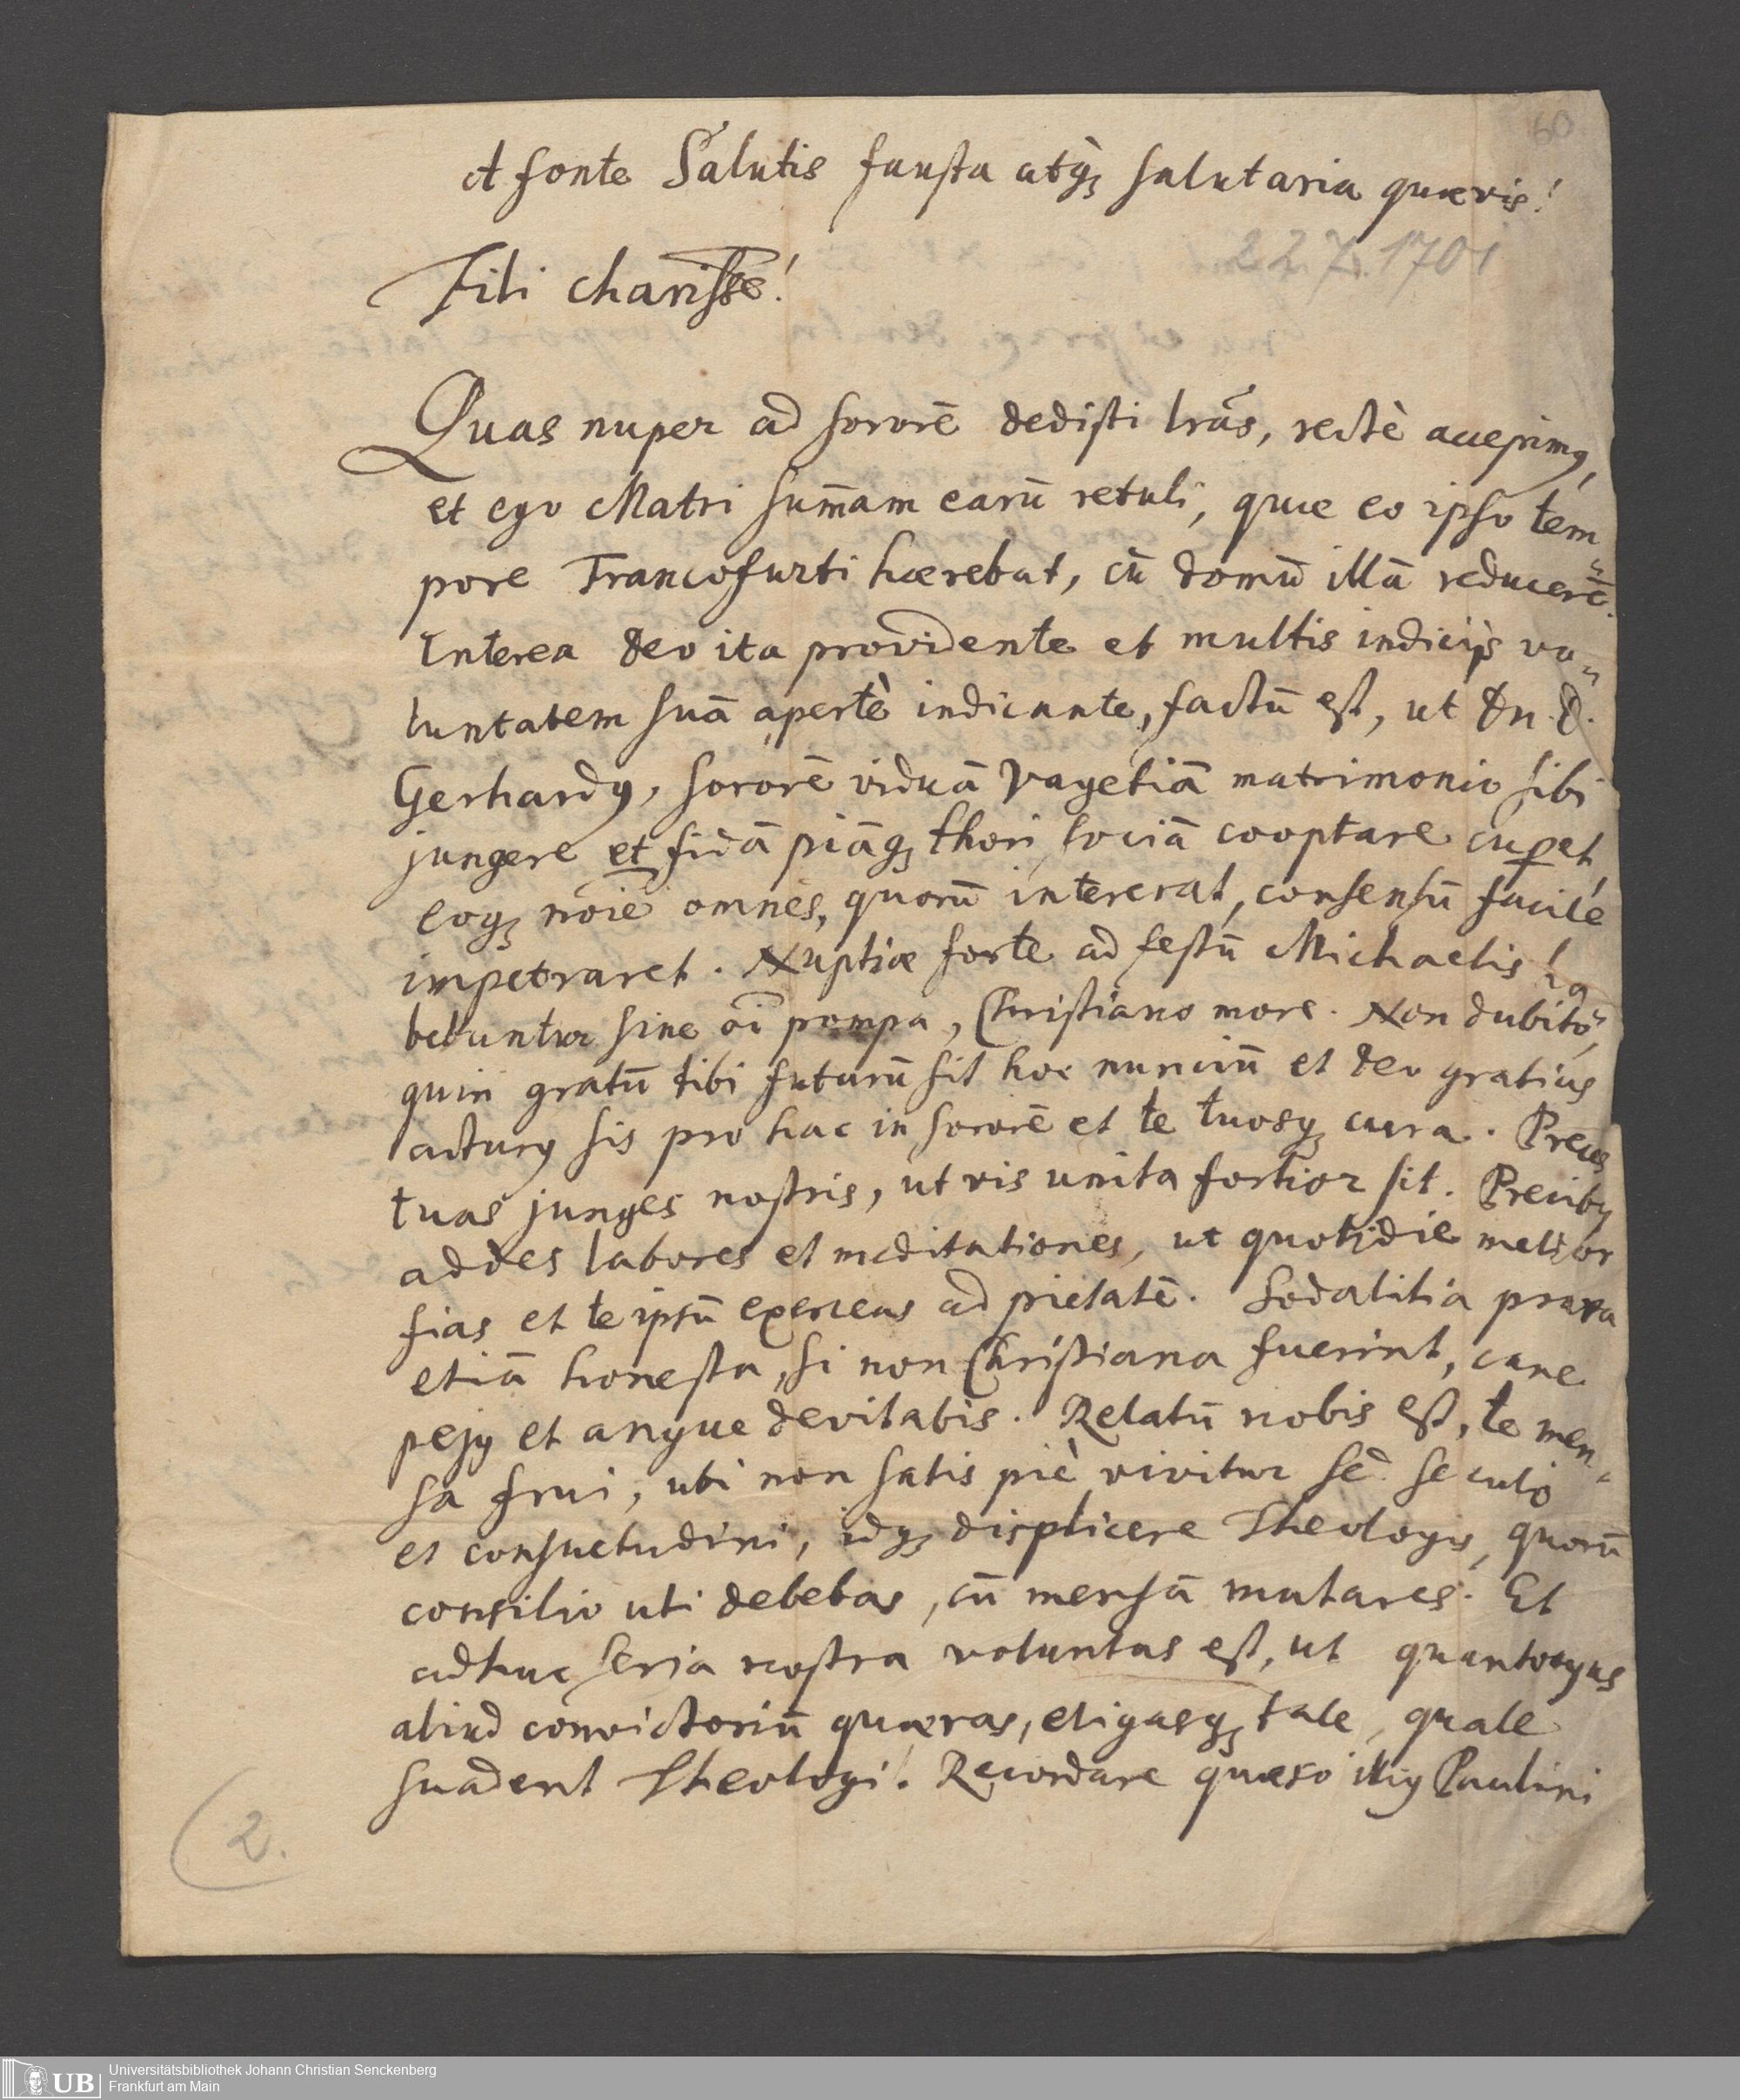 60
A fonte Salutis fausta atq́ꝫ salutaria quævis!
22.7.1701
Fili charisse!
Quas nuper ad sororē dedisti lrás, rectè accepimꝯ,
et ego Matri sum̄am earū retuli, quæ eo ipso tem„
pore Francofurti hærebat, cū domū illā reducerē.
Interea Deo ita providente et multis indicijs vo„
luntatem suā apertè indicante, factū est, ut Dn. D.
Gerhardꝯ, sororē viduā Vagetiā matrimonio sibi
jungere et fidā piāqꝫ thori sociā cooptare cuperet,
eoqꝫ noīe omnes, quorū intererat, consensū facilè
impetraret. Nuptiæ forte ad festū Michaelis ha„
bebuntur sine oī pompa, Christiano more. Non dubito,
quin gratū tibi futurū sit hoc nunciū et Deo gratias
acturꝯ sis pro hac in sororē et te tuosqꝫ cura. Preces
tuas junges nostris, ut vis unita fortior sit. Precibꝯ
addes labores et meditationes, ut quotidie melior
fias et te ipsū exerceas ad pietatē. Sodalitia prava
etiā honesta, si non Christiana fuerint, cane
pejꝯ et angue devitabis. Relatū nobis est, te men„
sa frui, ubi non satis piè vivitur sed seculo
et consuetudini, idqꝫ displicere Theologis, quorū
consilio uti debebas, cū mensā mutares. Et
adhuc seria nostra voluntas est, ut quantocyus
aliud convictoriū quæras, eligasqꝫ tale, quale
suadent Theologi. Recordare quæso illiꝯ Paulini
2.
Universitätsbibliothek Johann Christian Senckenberg
Frankfurt am Main
UB